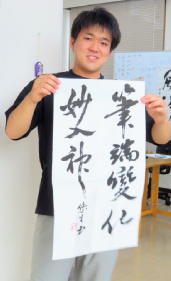 筆端變化
妙入神